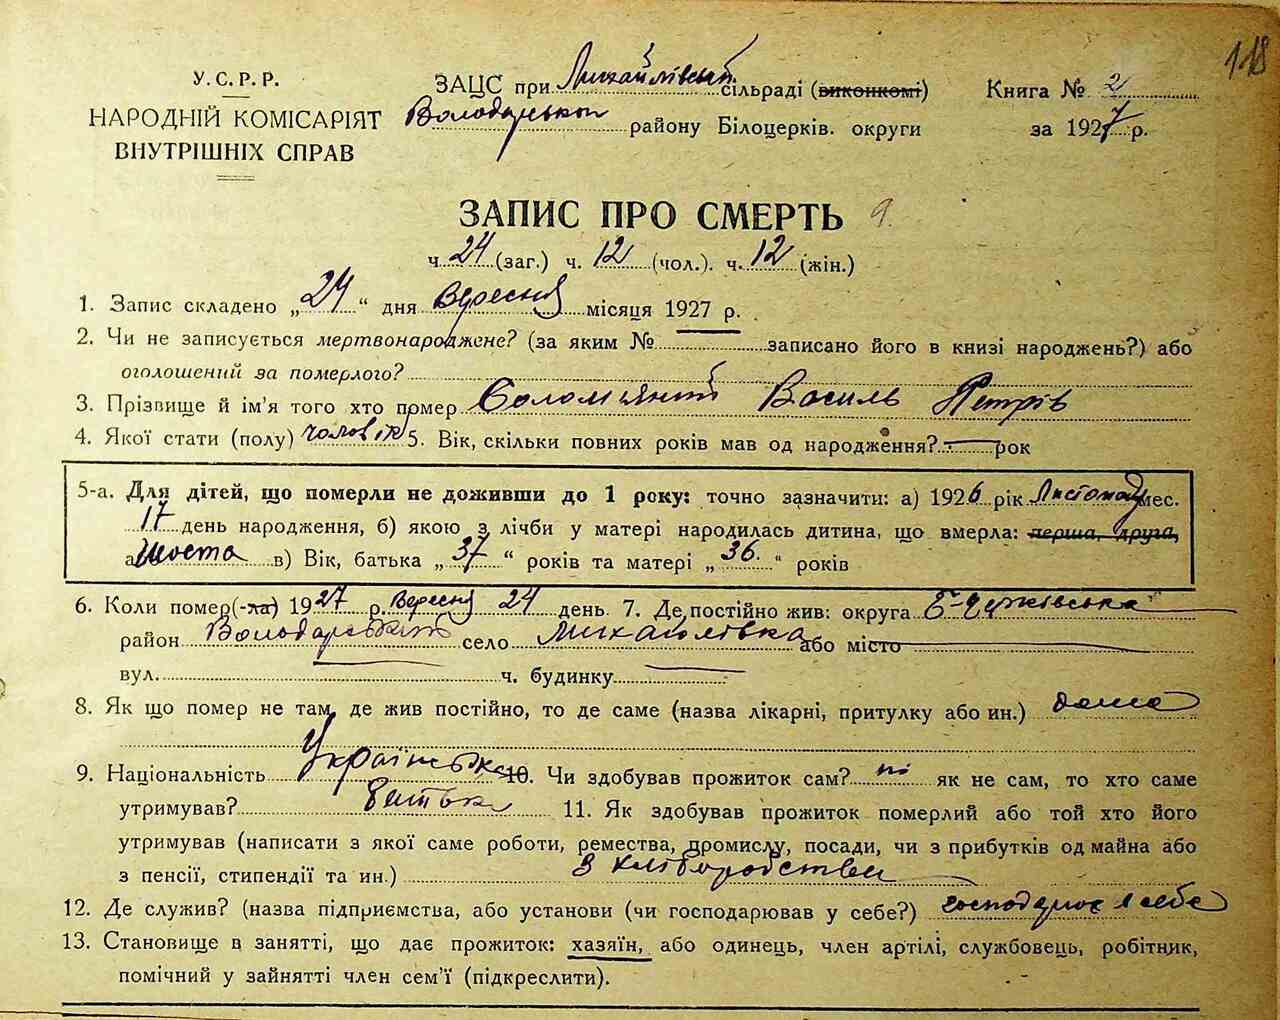 118
У.С.Р.Р.
НАРОДНІЙ КОМІСАРІЯТ
ВНУТРІШНІХ СПРАВ
ЗАЦС при Михайлівській сільраді (виконкомі)
Володарського району Білоцерків. округи
Книга № 2
за 1927 р.
ЗАПИС ПРО СМЕРТЬ 9.
ч. 24 (заг.) ч. 12 (чол.). ч. 12 (жін.)
1. Запис складено „24“ дня Вересня місяця 1927 р.
2. Чи не записується мертвонароджене? (за яким № записано його в книзі народжень?) або
оголошений за померлого?
3. Прізвище й ім'я того хто помер Солом'яний Василь Петрів
4. Якої стати (полу) чоловік 5. Вік, скільки повних років мав од народження? — рок
5-а. Для дітей, що померли не доживши до 1 року: точно зазначити: а) 1926 рік Листопад мес.
17 день народження, б) якою з лічби у матері народилась дитина, що вмерла: перша, друга,
а шоста в) Вік, батька „37“ років та матері „36.“ років
6. Коли помер(-ла) 1927 р. Вересня 24 день. 7. Де постійно жив: округа Б-Церківська
район Володарський село Михайлівка або місто —
вул. — ч. будинку —
8. Як що помер не там, де жив постійно, то де саме (назва лікарні, притулку або ин.) дома
9. Національність Українська 10. Чи здобував прожиток сам? ні як не сам, то хто саме
утримував? батько 11. Як здобував прожиток померлий або той хто його
утримував (написати з якої саме роботи, ремества, промислу, посади, чи з прибутків од майна або
з пенсії, стипендії та ин.) З хліборобства
12. Де служив? (назва підприємства, або установи (чи господарював у себе?) господарює в себе
13. Становище в занятті, що дає прожиток: хазяїн, або одинець, член артілі, службовець, робітник,
помічний у зайнятті член сем'ї (підкреслити).